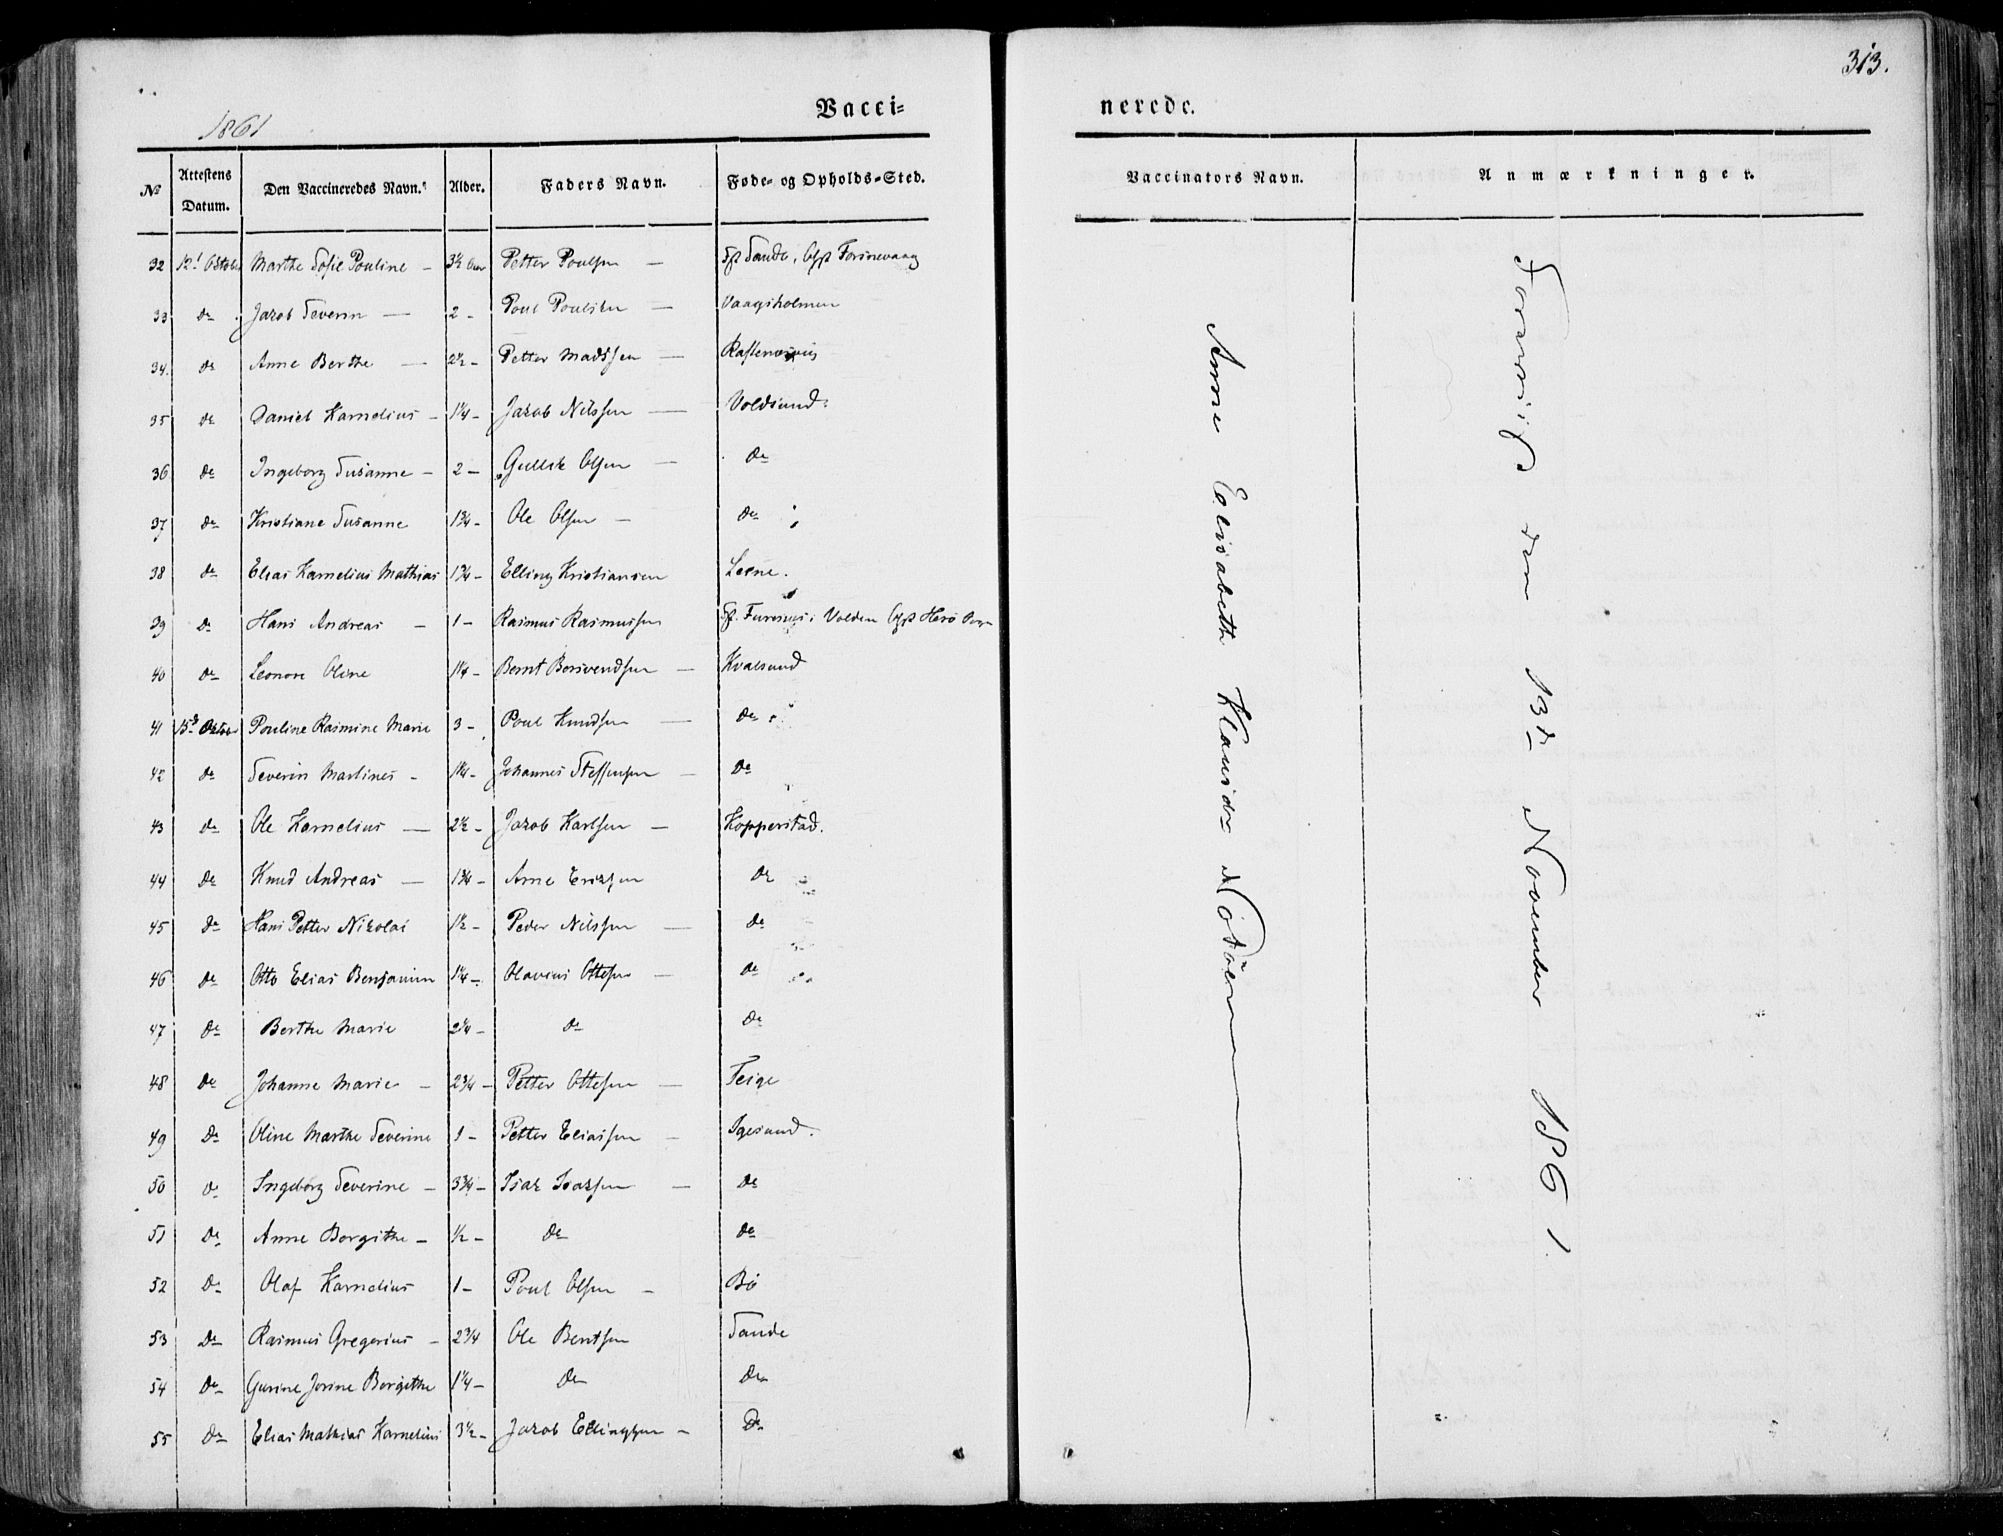 313.
Vacci=
nerede.
1861
№ Attestens Datum. Den Vaccineredes Navn. Alder. Faders Navn. Føde- og Opholds-Sted. Vaccinators Navn. Anmærkninger.
32 12t Marthe Sofie Pouline – 3½ Petter Poulsen – Sande,
33 do Jacob Severin — 2 – Poul Poulsen — Vaagsholmen
34. do Anne Berthe — 2½ – Petter Madssen —
35 do Daniel Karnelius – 1¼ – Jacob Nilssen — Voldsund
36 do Ingeborg Susanne – 2 – Gullik Olsen — do
37 do Kristiane Susanne 1¾ – Ole Olsen – do
38 do Elias Karnelius Mathias 1¾ – Elling Kristiansen Leene.
39 do Hans Andreas – 1 – Rasmus Rasmussen i Volden Herø
40 do Leonore Oline 1¼ – Bernt Berivendsen – Kvalsund
41 15d Pouline Rasmine Marie 3 – Poul Knudsen — do
42 do Severin Martines – 1¼ – Johannes Steffensen – do
43 do Ole Karnelius — 2½ – Jacob Karlsen – Kopperstad.
44 do Knud Andreas — 1¾ – Arne Eriksen do
45 do Hans Petter Nikolai 1½ – Peder Nilssen — do
46 do Otto Elias Benjamin 1¼ – Olavius Ottesen – do
47 do Berthe Marie 2¼ – do do
48 do Johanne Marie – 2¾ – Petter Ottesen — Teige
49 do Oline Marthe Severine 1 – Petter Eliassen – Igesund.
50 do Ingeborg Severine – 3¾ – Isak Isaksen – do
51 do Anne Borgithe – ½ – do do
52 do Olaf Karnelius 1 – Poul Olsen – Bø
53 do Rasmus Gregorius – 2¾ Ole Bentsen Sande
54 do Gurine Jorine Borgithe 1¼ – do do
55 do Elias Mathias Karnelius 3½ – Jacob Ellingsen – do
Anne Elisabeth Klausdr Nøtøen
den 13de November 1861.